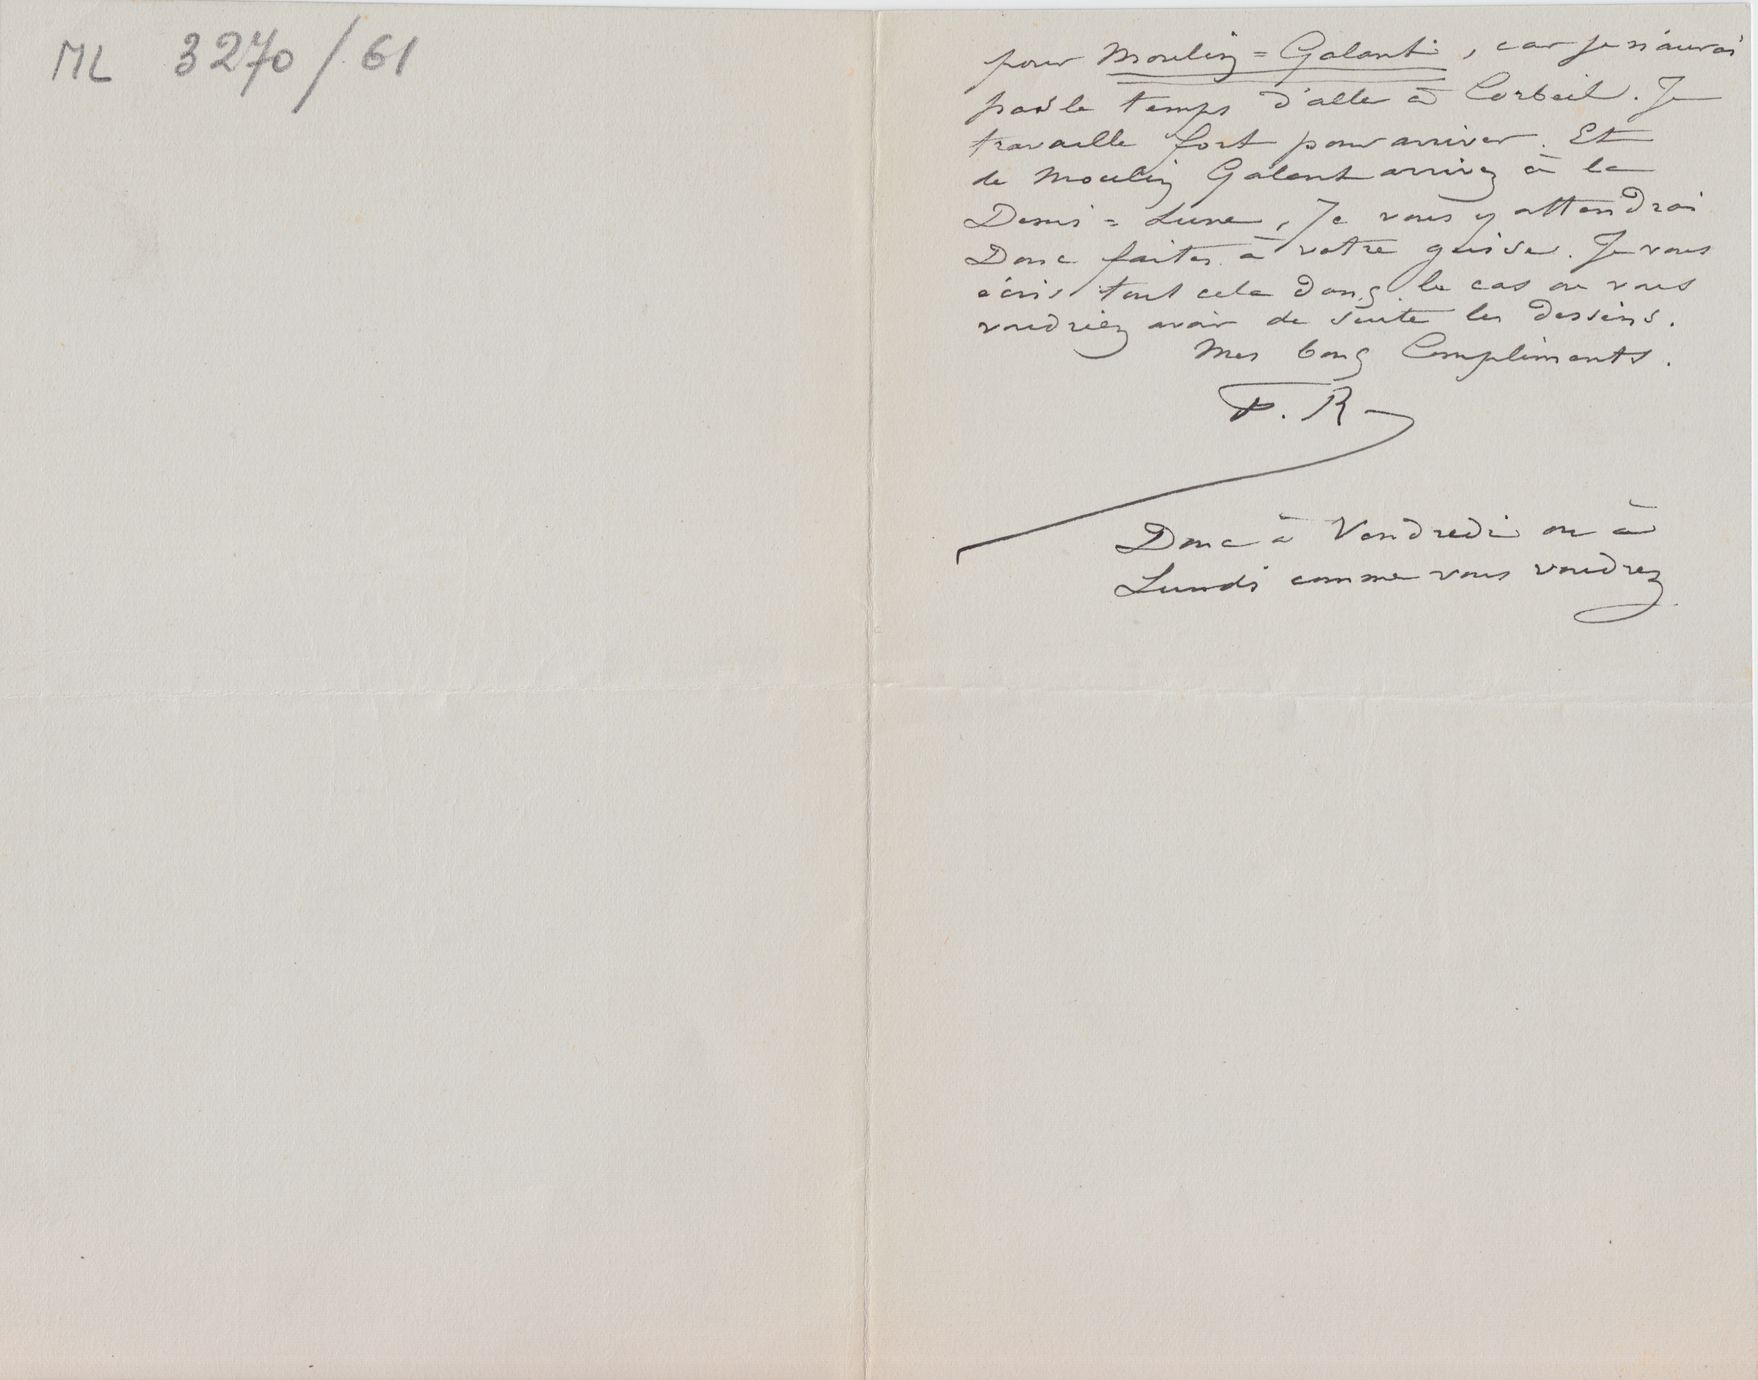 ML 3270/61
pour Moulin=Galant, car je n'aurai
pas le temps d'aller à Corbeil. Je
travaille fort pour arriver. Et
de Moulin Galant arrivez à la
Demi=Lune, Je vous y attendrai
Donc faites à votre guise. Je vous
écris tout cela dans le cas ou vous
voudriez avoir de suite les dessins.
Mes bons Compliments.
F. R
Donc à Vendredi ou à
Lundi comme vous voudrez